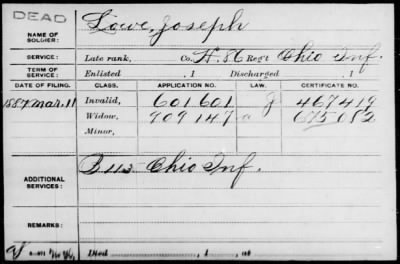 DEAD
NAME OF SOLDIER: Lowe, Joseph
SERVICE: Late rank, Co. H. 86 Regt Ohio Inf.
TERM OF SERVICE: Enlisted , 1 Discharged , 1
DATE OF FILING. CLASS. APPLICATION NO. LAW. CERTIFICATE NO.
1887 Mar. 11 Invalid, 601601 g 467419
Widow, 909147 a 675082
Minor,
ADDITIONAL SERVICES: B 113 Ohio Inf.
REMARKS:
Died , 1 , 188